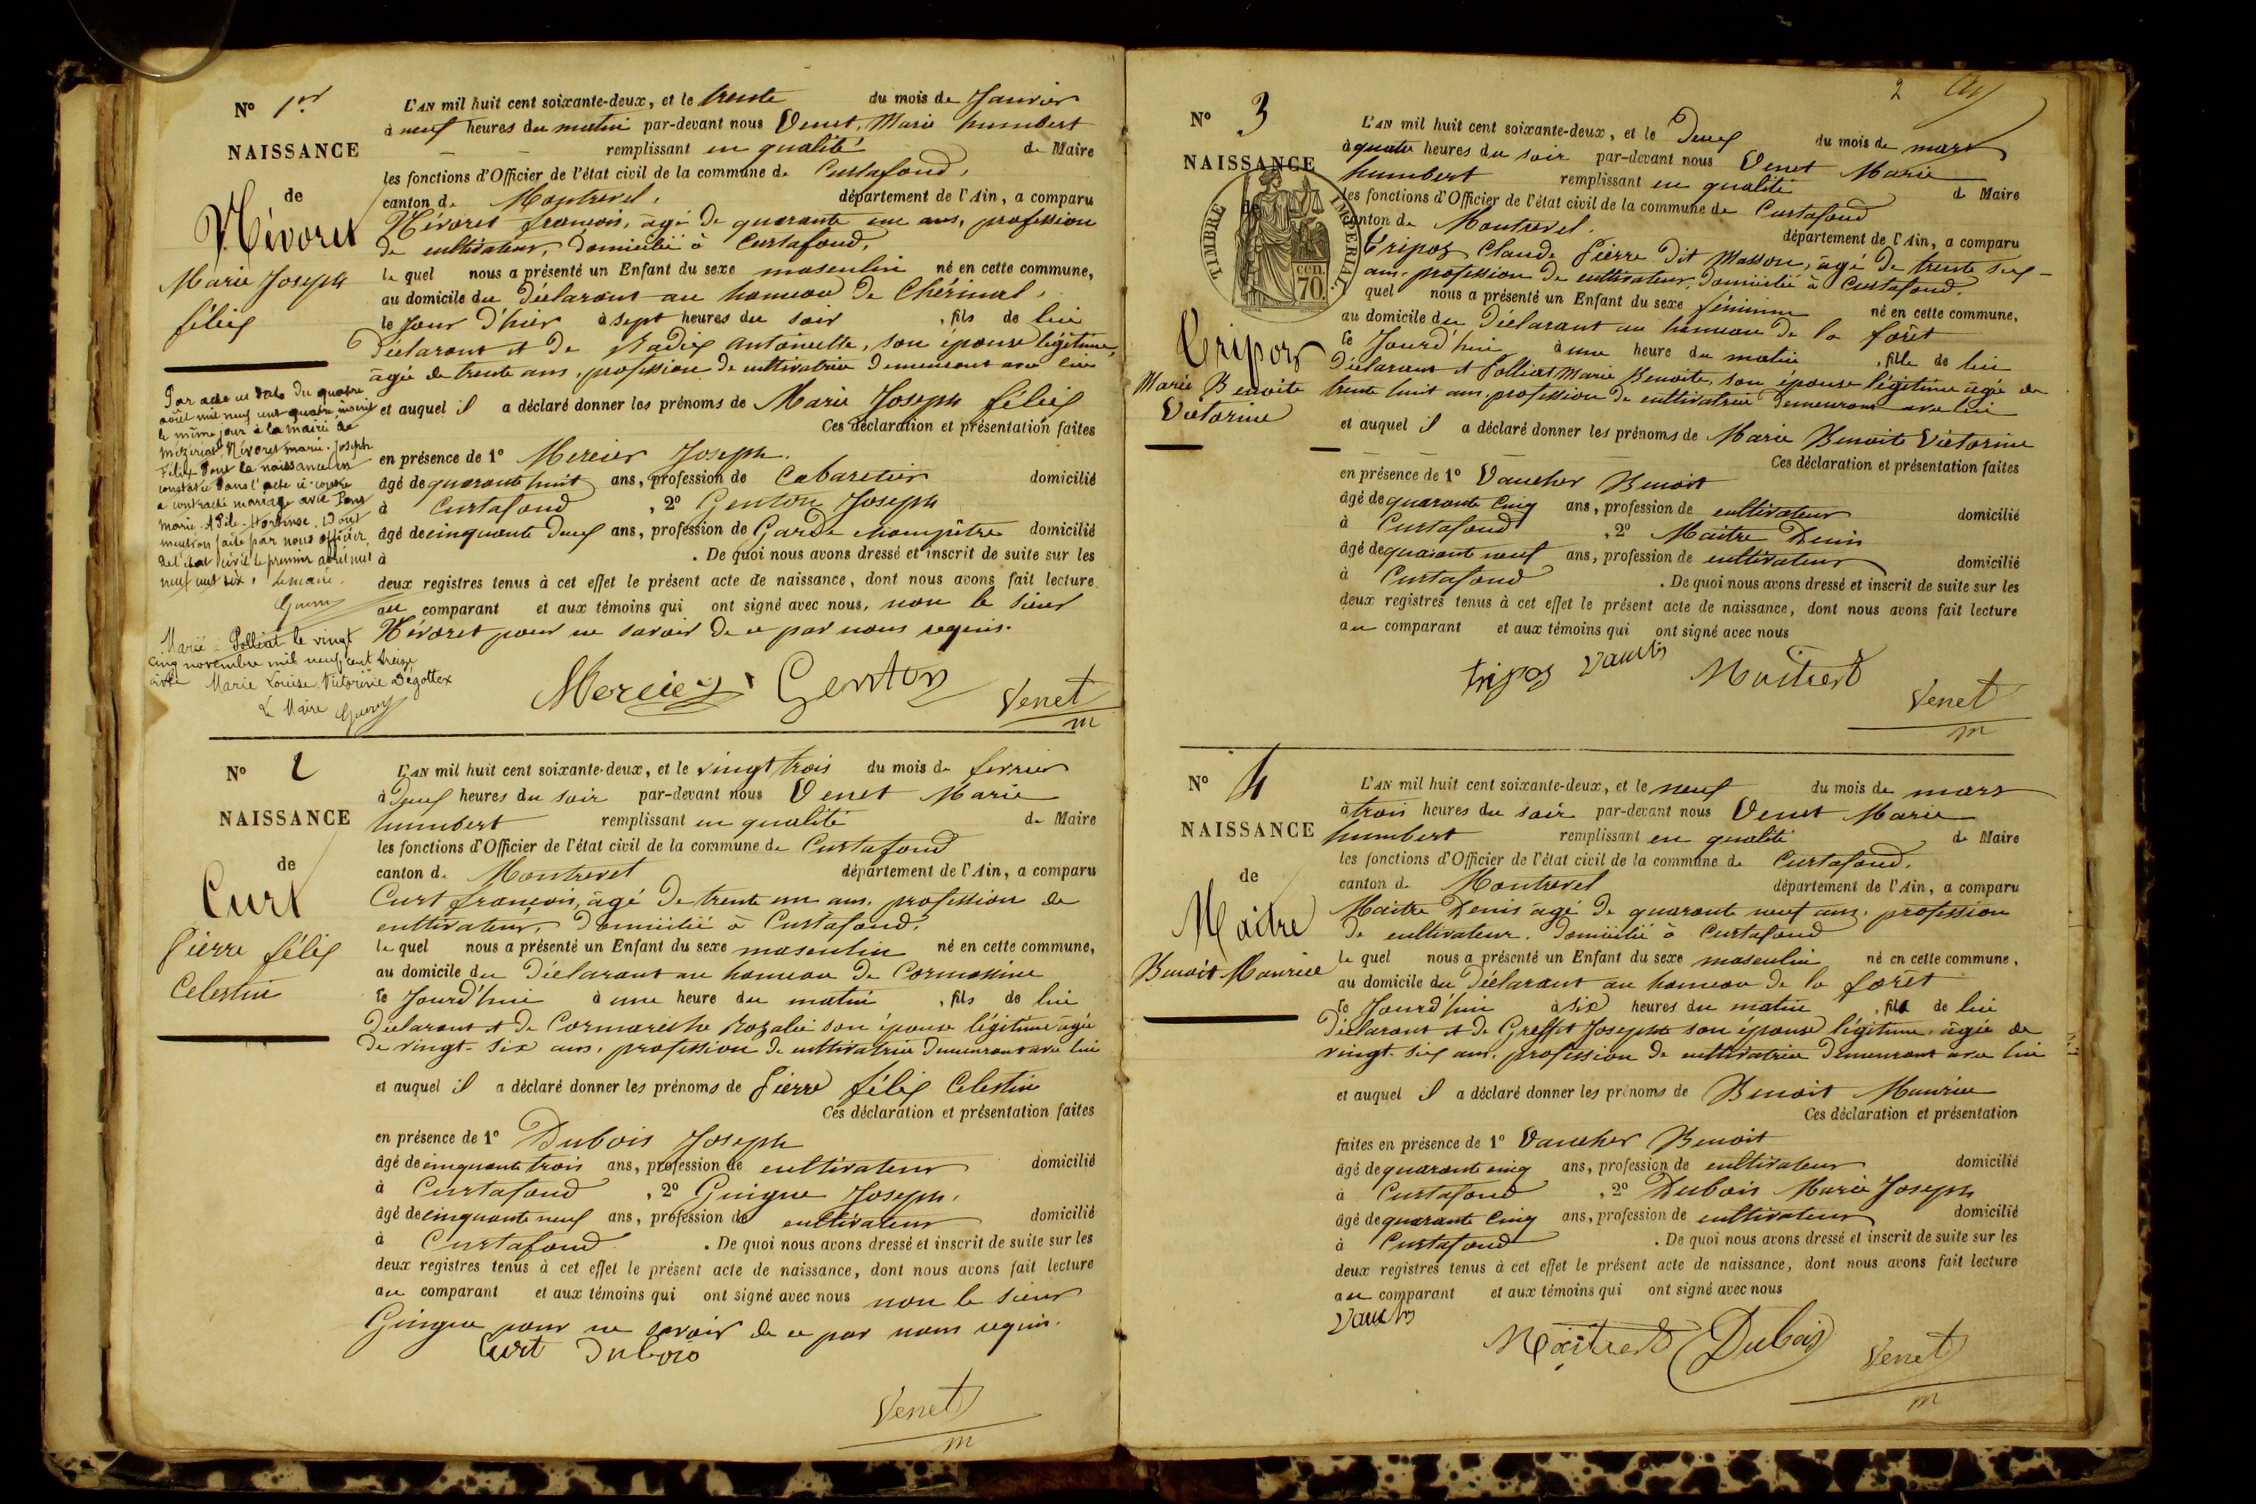 N° 1er
NAISSANCE
de
Névoret
Marie Joseph
félix
Par acte en date du quatre
août mil neuf cent quatre, inscrit
le même jour à la mairie de
Mézériat Névoret marie-Joseph
Félix dont la naissance est
constatée dans l'acte ci-contre
a contracté mariage avec Pons
marie
mention faite par nous officier
de l'état civil le premier août mil
neuf cent six. Le maire.
Marié à Polliat le vingt
cinq novembre mil neuf cent treize
avec Marie Louise Victorine Degottex
Le Maire
L'AN mil huit cent soixante-deux, et le trente du mois de Janvier
à neuf heures du matin par-devant nous Venet, Marie humbert
remplissant en qualité de Maire
les fonctions d'Officier de l'état civil de la commune de Curtafond,
canton de Montrevel, département de l'Ain, a comparu
Névoret françois, âgé de quarante un ans, profession
de cultivateur, domicilié à Curtafond,
le quel nous a présenté un Enfant du sexe masculin né en cette commune,
au domicile du déclarant au hameau de Chérinal,
le Jour d'hier à sept heures du soir, fils de lui
déclarant et de Radix antoinette, son épouse légitime,
âgée de trente ans, profession de cultivatrice demeurant avec lui
et auquel il a déclaré donner les prénoms de Marie Joseph félix
Ces déclaration et présentation faites
en présence de 1° Mercier Joseph.
âgé de quarante huit ans, profession de Cabaretier domicilié
à Curtafond, 2° Genton Joseph
âgé de cinquante deux ans, profession de Garde champêtre domicilié
à . De quoi nous avons dressé et inscrit de suite sur les
deux registres tenus à cet effet le présent acte de naissance, dont nous avons fait lecture
au comparant et aux témoins qui ont signé avec nous, non le sieur
Névoret pour ne savoir de ce par nous requis.
Mercier Genton Venet
m
N° 2
NAISSANCE
de
Curt
Pierre félix
Celestin
L'AN mil huit cent soixante-deux, et le vingt trois du mois de fevrier
à deux heures du soir par-devant nous Venet Marie
humbert remplissant en qualité de Maire
les fonctions d'Officier de l'état civil de la commune de Curtafond
canton de Montrevel département de l'Ain, a comparu
Curt françois, âgé de trente un ans, profession de
cultivateur, domicilié à Curtafond,
le quel nous a présenté un Enfant du sexe masculin né en cette commune,
au domicile du déclarant au hameau de Cormassine
le Jourd'hui à une heure du matin, fils de lui
déclarant et de Cormareche Rozalie son épouse légitime âgée
de vingt-six ans, profession de cultivatrice demeurant avec lui
et auquel il a déclaré donner les prénoms de Pierre félix Celestin
Ces déclaration et présentation faites
en présence de 1° Dubois Joseph
âgé de cinquante trois ans, profession de cultivateur domicilié
à Curtafond, 2° Guigue Joseph,
âgé de cinquante neuf ans, profession de cultivateur domicilié
à Curtafond. De quoi nous avons dressé et inscrit de suite sur les
deux registres tenus à cet effet le présent acte de naissance, dont nous avons fait lecture
au comparant et aux témoins qui ont signé avec nous non le sieur
Guigue pour ne savoir de ce par nous requis.
Curt Dubois
Venet
m
2
N° 3
NAISSANCE
de
TIMBRE IMPERIAL
cen.
70.
Tripoz
Marie Benoite
Victorine
L'AN mil huit cent soixante-deux, et le Deux du mois de mars
à quatre heures du soir par-devant nous Venet Marie
humbert remplissant en qualité de Maire
les fonctions d'Officier de l'état civil de la commune de Curtafond
canton de Montrevel. département de l'Ain, a comparu
Tripoz Claude Pierre dit Masson, âgé de trente six
ans, profession de cultivateur, domicilié à Curtafond,
quel nous a présenté un Enfant du sexe féminin né en cette commune,
au domicile du déclarant au hameau de la forêt
le Jourd'hui à une heure du matin, fille de lui
déclarant et Polliat Marie Benoite, son épouse légitime âgée de
trente huit ans, profession de cultivatrice demeurant avec lui
et auquel il a déclaré donner les prénoms de Marie Benoite Victorine
Ces déclaration et présentation faites
en présence de 1° Vaucher Benoit
âgé de quarante cinq ans, profession de cultivateur domicilié
à Curtafond, 2° Maitre Denis
âgé de quarante neuf ans, profession de cultivateur domicilié
à Curtafond. De quoi nous avons dressé et inscrit de suite sur les
deux registres tenus à cet effet le présent acte de naissance, dont nous avons fait lecture
au comparant et aux témoins qui ont signé avec nous
tripoz Maitred Venet
m
N° 4
NAISSANCE
de
Maitre
Benoit Maurice
L'AN mil huit cent soixante-deux, et le neuf du mois de mars
à trois heures du soir par-devant nous Venet Marie
humbert remplissant en qualité de Maire
les fonctions d'Officier de l'état civil de la commune de Curtafond.
canton de Montrevel département de l'Ain, a comparu
Maitre Denis âgé de quarante neuf ans, profession
de cultivateur. domicilié à Curtafond
le quel nous a présenté un Enfant du sexe masculin né en cette commune,
au domicile du déclarant au hameau de la forêt
le Jourd'hui à six heures du matin, fils de lui
déclarant et de Greffet Josephte son épouse légitime, âgée de
vingt-six ans, profession de cultivatrice demeurant avec lui
et auquel il a déclaré donner les prénoms de Benoit Maurice
Ces déclaration et présentation
faites en présence de 1° Vaucher Benoit
âgé de quarante cinq ans, profession de cultivateur domicilié
à Curtafond, 2° Dubois Marie Joseph
âgé de quarante cinq ans, profession de cultivateur domicilié
à Curtafond. De quoi nous avons dressé et inscrit de suite sur les
deux registres tenus à cet effet le présent acte de naissance, dont nous avons fait lecture
au comparant et aux témoins qui ont signé avec nous
Maitred Dubois Venet
m